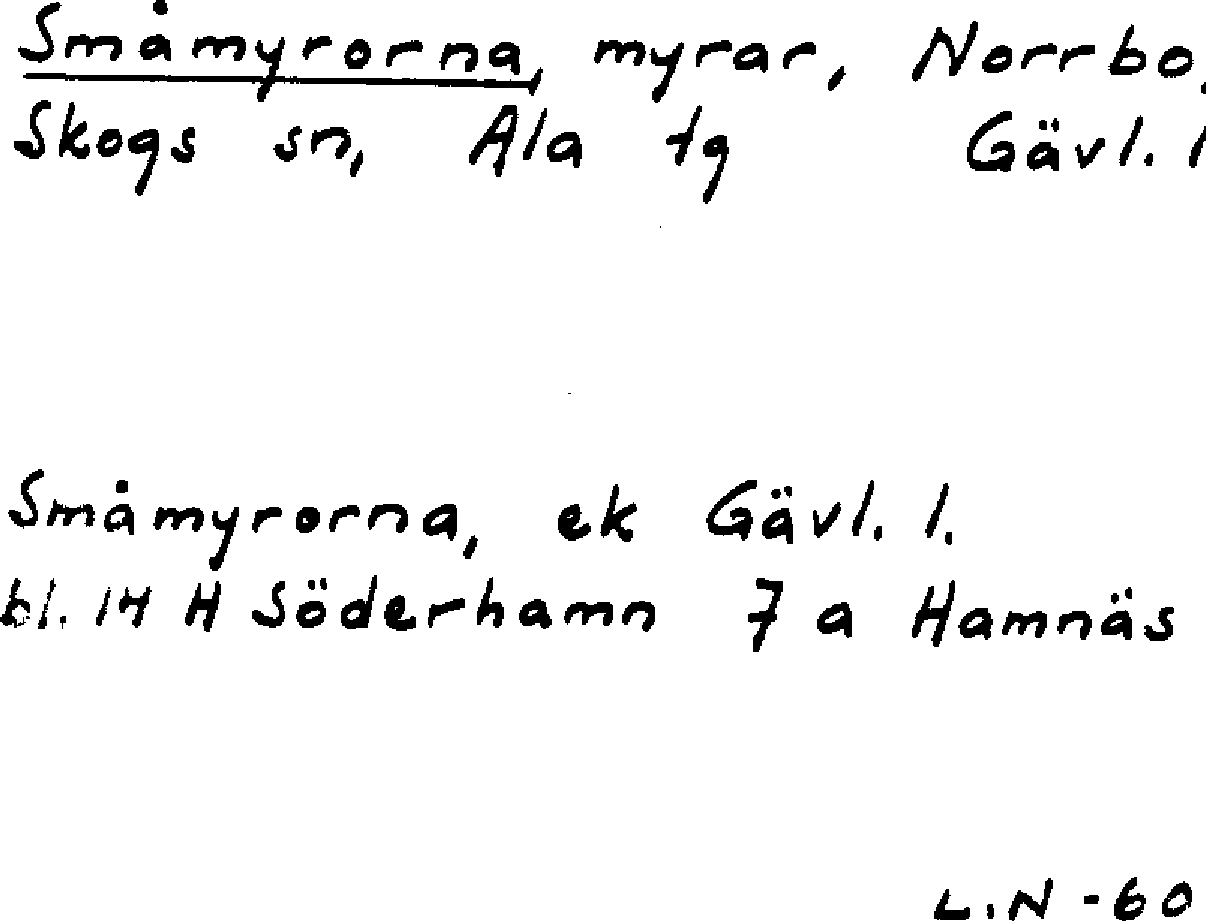 Småmyrorna, myrar, Norrbo,
Skogs sn, Ala tg Gävl. l
Småmyrorna, ek Gävl. l.
bl. 14 H Söderhamn 7 a Hamnäs
L.N -60